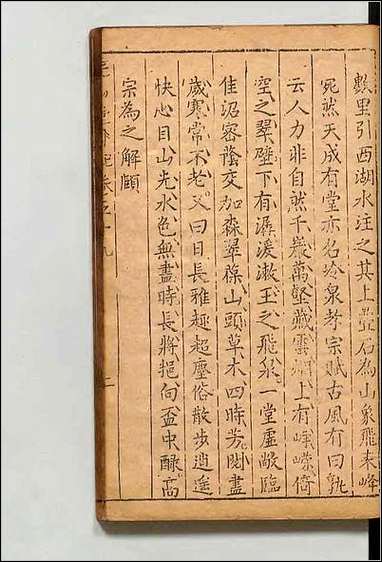 數里引西湖水注之其上壘石為山象飛來峰
宛然天成有堂亦名冷泉孝宗賦古風有曰孰
云人力非自然千巖萬壑藏雲烟上有崢嶸倚
空之翠壁下有潺湲漱玉之飛泉一堂虛敞臨
佳沼密蔭交加森翠葆山頭草木四時芳閱盡
歲寒常不老又曰日長雅趣超塵俗散步逍遥
快心目山光水色無盡時長將挹向盃中醁高
宗為之解頤